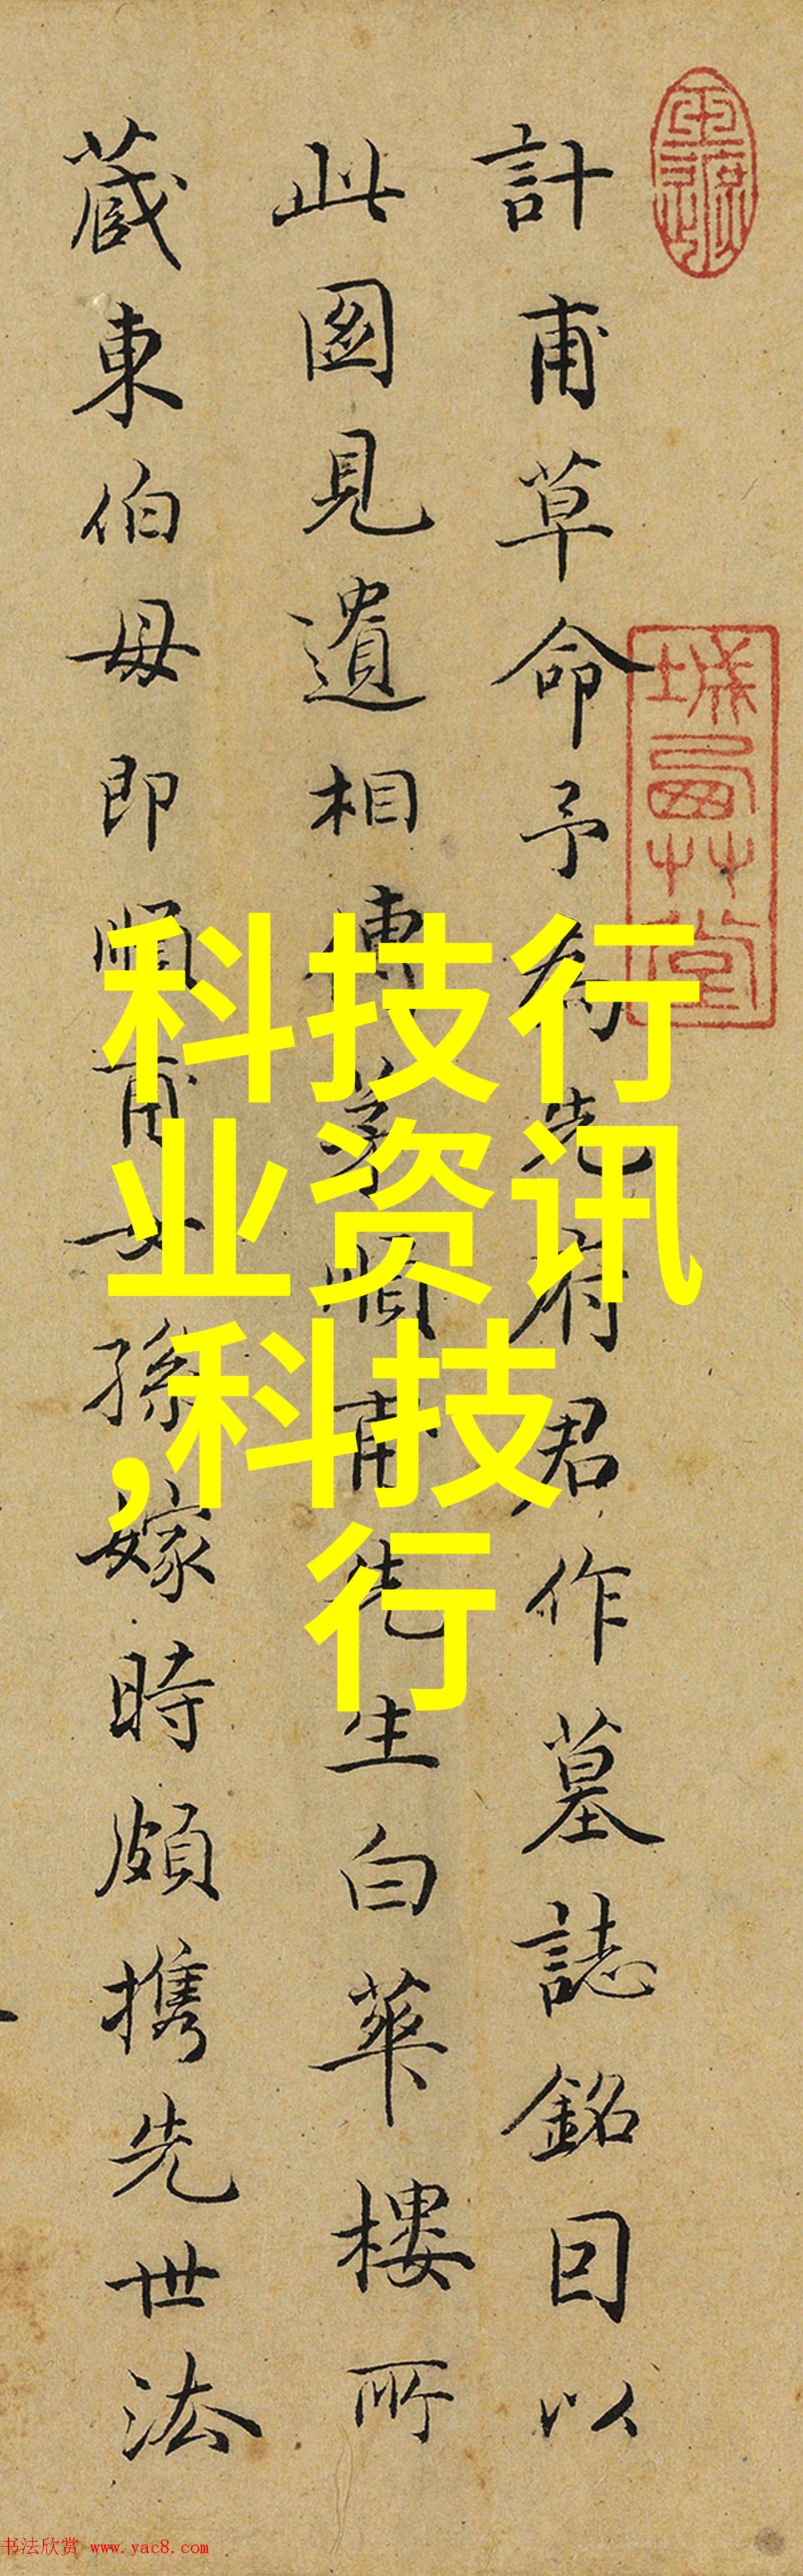 計甫草命予為先府君作墓誌銘因以
此圖見遺相傳茅順甫先生白華樓所
蔵東伯母即順甫女孫嫁時頗携先世法
科技行
业资讯
,科技
行
书法欣赏 www.yac8.com